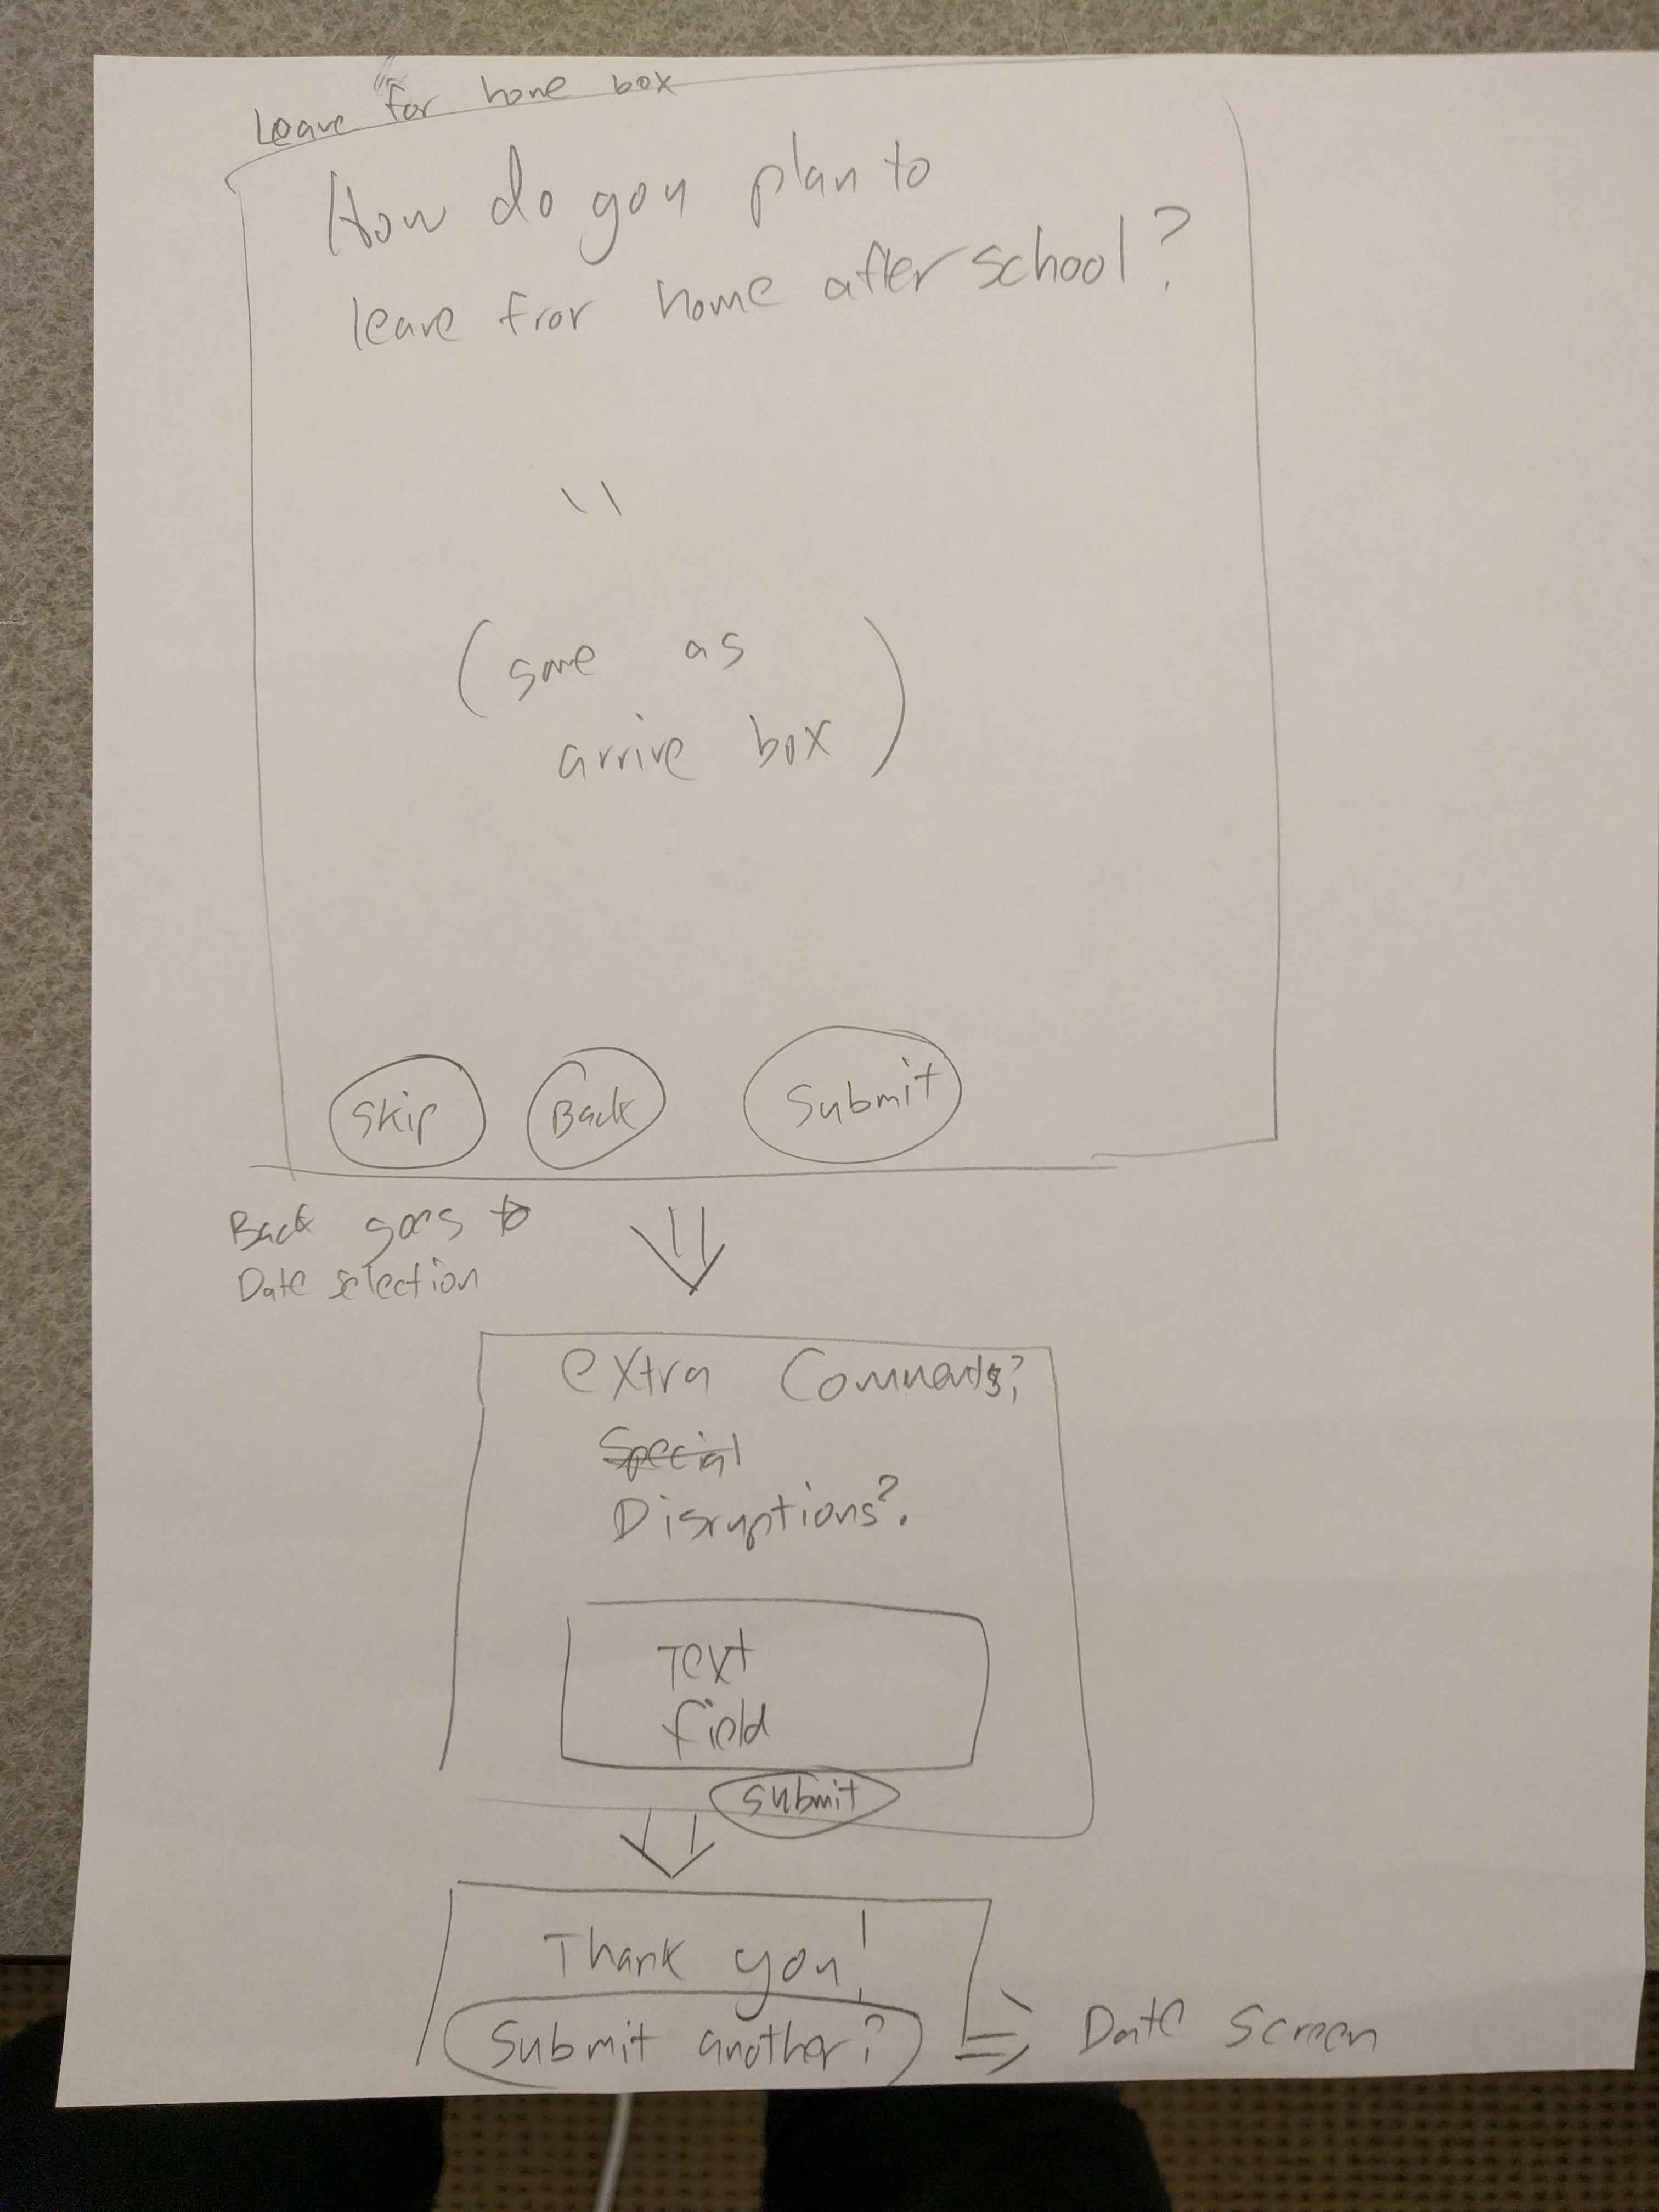 Leave for home box
How do you plan to
leave fror home after school?
"
(same as
arrive box)
Skip Back Submit
Back goes to
Date selection
extra Comments?
Special
Disruptions?
Text
field
submit
Thank you!
Submit another? ⇒ Date Screen